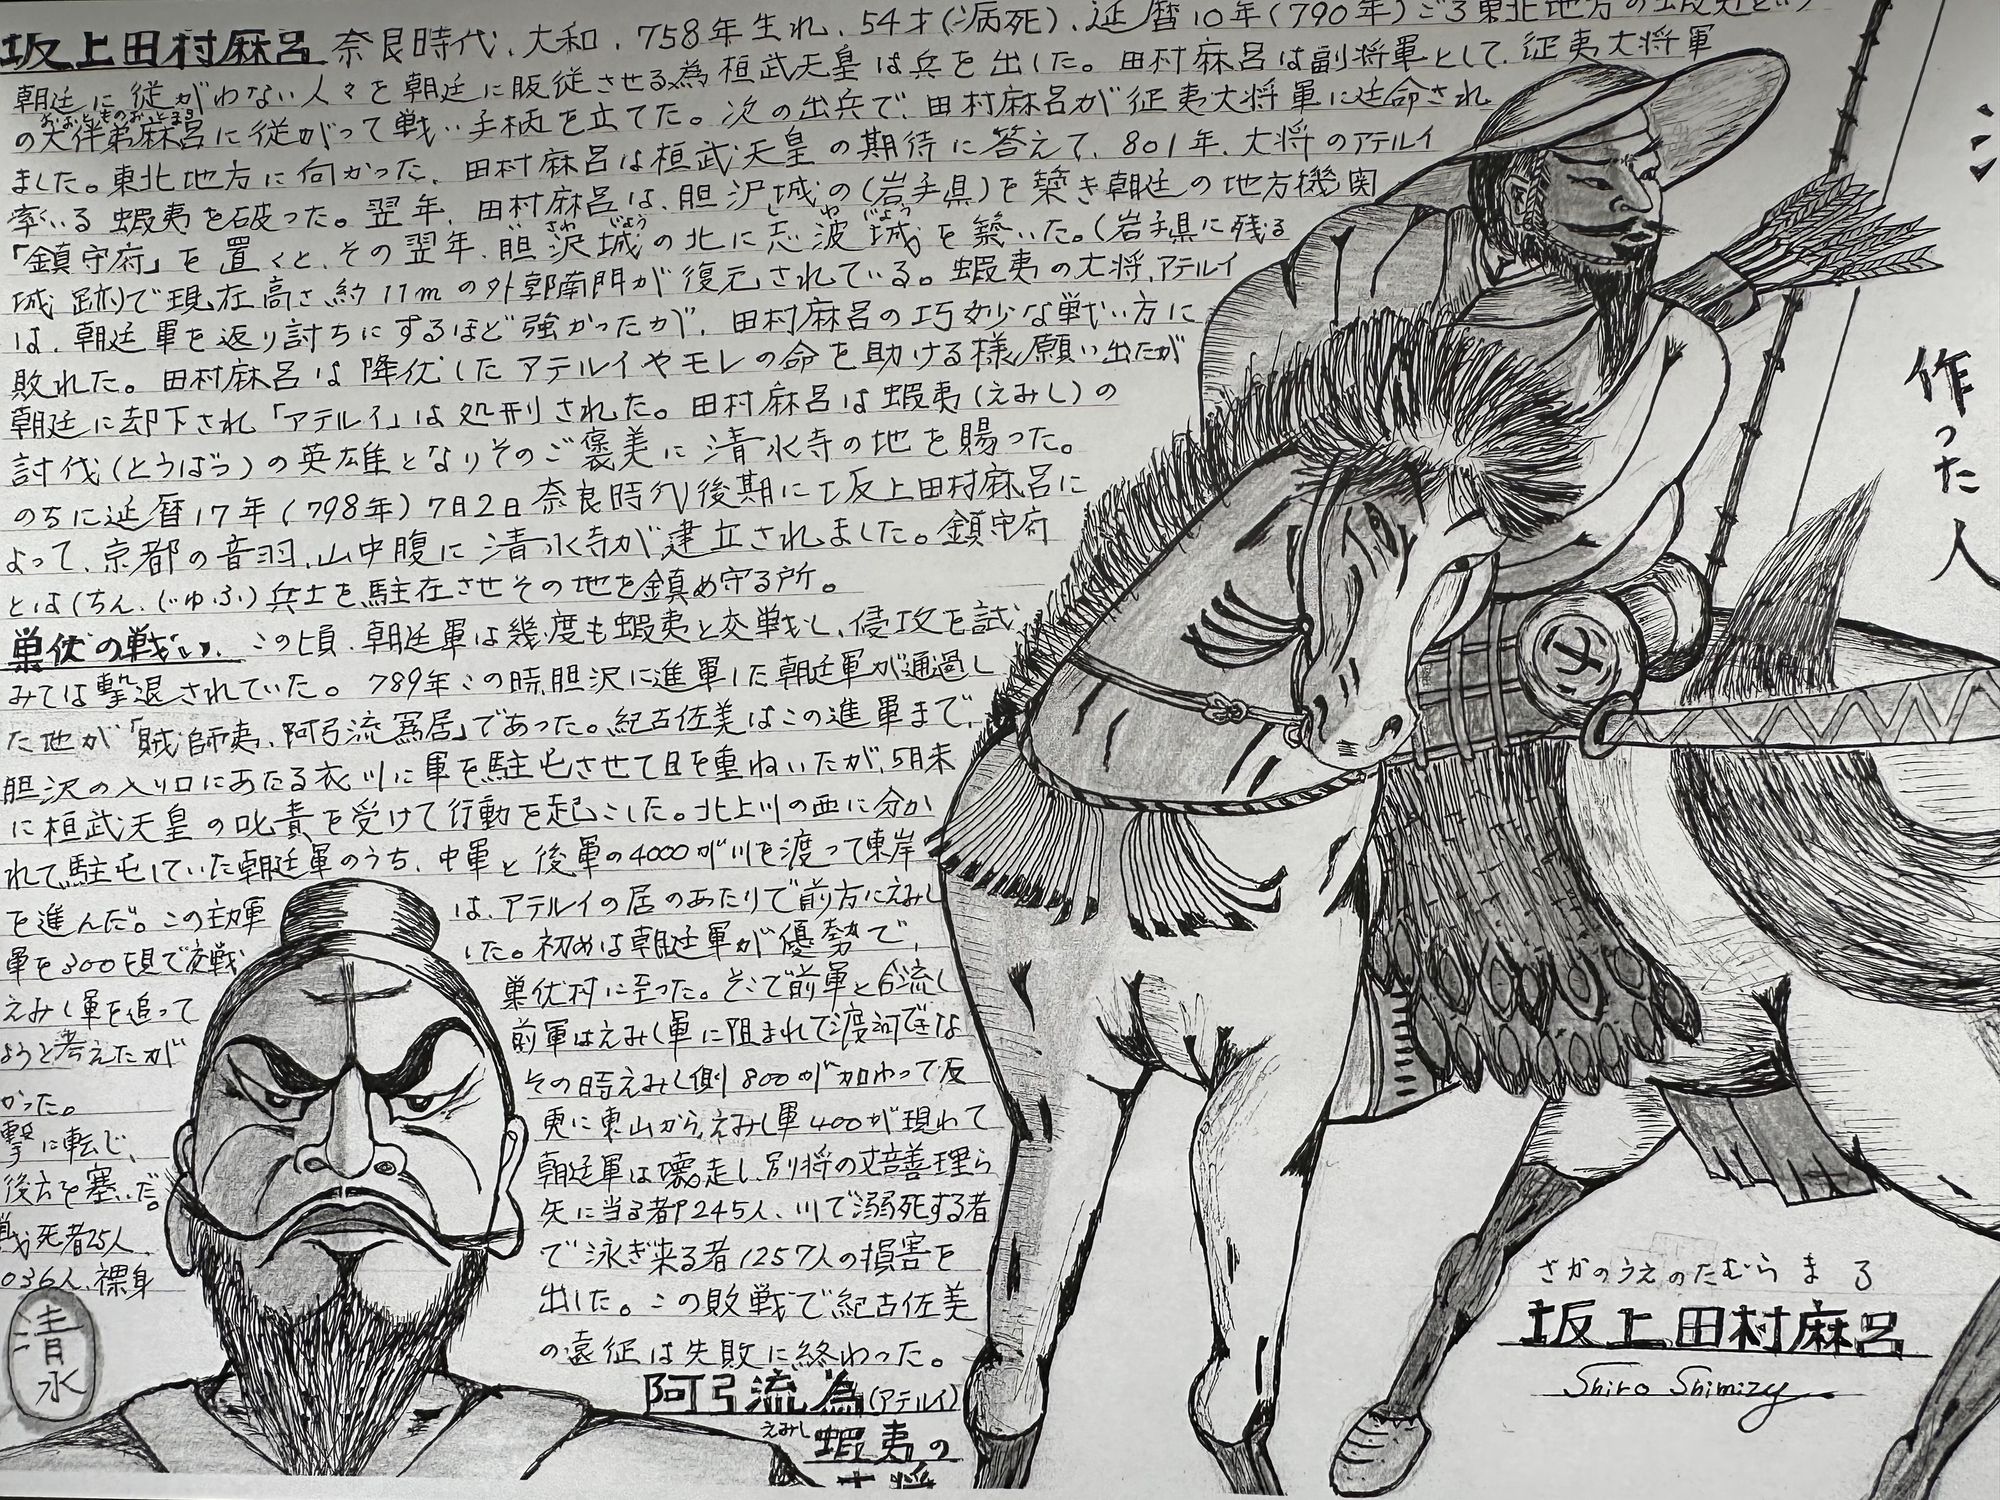 坂上田村麻呂 奈良時代、大和、758年生れ、54才(病死)、延暦10年(790年)ごろ東北地方の蝦夷という
朝廷に従がわない人々を朝廷に服従させる為桓武天皇は兵を出した。田村麻呂は副将軍として、征夷大将軍
おおとものおとまろ
の大伴弟麻呂に従がって戦い手柄を立てた。次の出兵で、田村麻呂が征夷大将軍に任命され
ました。東北地方に向かった、田村麻呂は桓武天皇の期待に答えて、801年、大将のアテルイ
率いる蝦夷を破った。翌年、田村麻呂は、胆沢城の(岩手県)を築き朝廷の地方機関
さわ じょう し わ じょう
「鎮守府」を置くと、その翌年、胆沢城の北に志波城を築いた。(岩手県に残る
城跡)で現在高さ約11mの外郭南門が復元されている。蝦夷の大将、アテルイ
は、朝廷軍を返り討ちにするほど強かったが、田村麻呂の巧妙な戦い方に
敗れた。田村麻呂は降伏したアテルイやモレの命を助ける様願い出たが
朝廷に却下され「アテルイ」は処刑された。田村麻呂は蝦夷(えみし)の
討伐(とうばつ)の英雄となりそのご褒美に清水寺の地を賜った。
のちに延暦17年(798年)7月2日奈良時代後期に坂上田村麻呂に
よって、京都の音羽、山中腹に清水寺が建立されました。鎮守府
とは(ちん、じゅふ)兵士を駐在させその地を鎮め守る所。
巣伏の戦い、この頃、朝廷軍は幾度も蝦夷と交戦し、侵攻を試
みては撃退されていた。789年この時胆沢に進軍した朝廷軍が通過し
た地が「賊師夷、阿弖流爲居」であった。紀古佐美はこの進軍まで、
胆沢の入り口にあたる衣川に軍を駐屯させて日を重ねいたが、5月末
に桓武天皇の叱責を受けて行動を起こした。北上川の西に分か
れて駐屯していた朝廷軍のうち、中軍と後軍の4000が川を渡って東岸
を進んだ。この主力軍は、アテルイの居のあたりで前方にえみし
軍を300を見て交戦した。初めは朝廷軍が優勢で、
えみし軍を追って巣伏村に至った。そこで前軍と合流し
ようと考えたが前軍はえみし軍に阻まれて渡河できな
かった。その時えみし側800が加わって反
撃に転じ、更に東山からえみし軍400が現われて
後方を塞いだ。朝廷軍は壊走し、別将の丈部善理ら
戦死者25人、矢に当る者245人、川で溺死する者
036人、裸身で泳ぎ来る者1257人の損害を
出した。この敗戦で紀古佐美
の遠征は失敗に終わった。
阿弖流為(アテルイ)
えみし
蝦夷の
大将
清水
作った人
さかのうえのたむらまろ
坂上田村麻呂
Shiro Shimizu